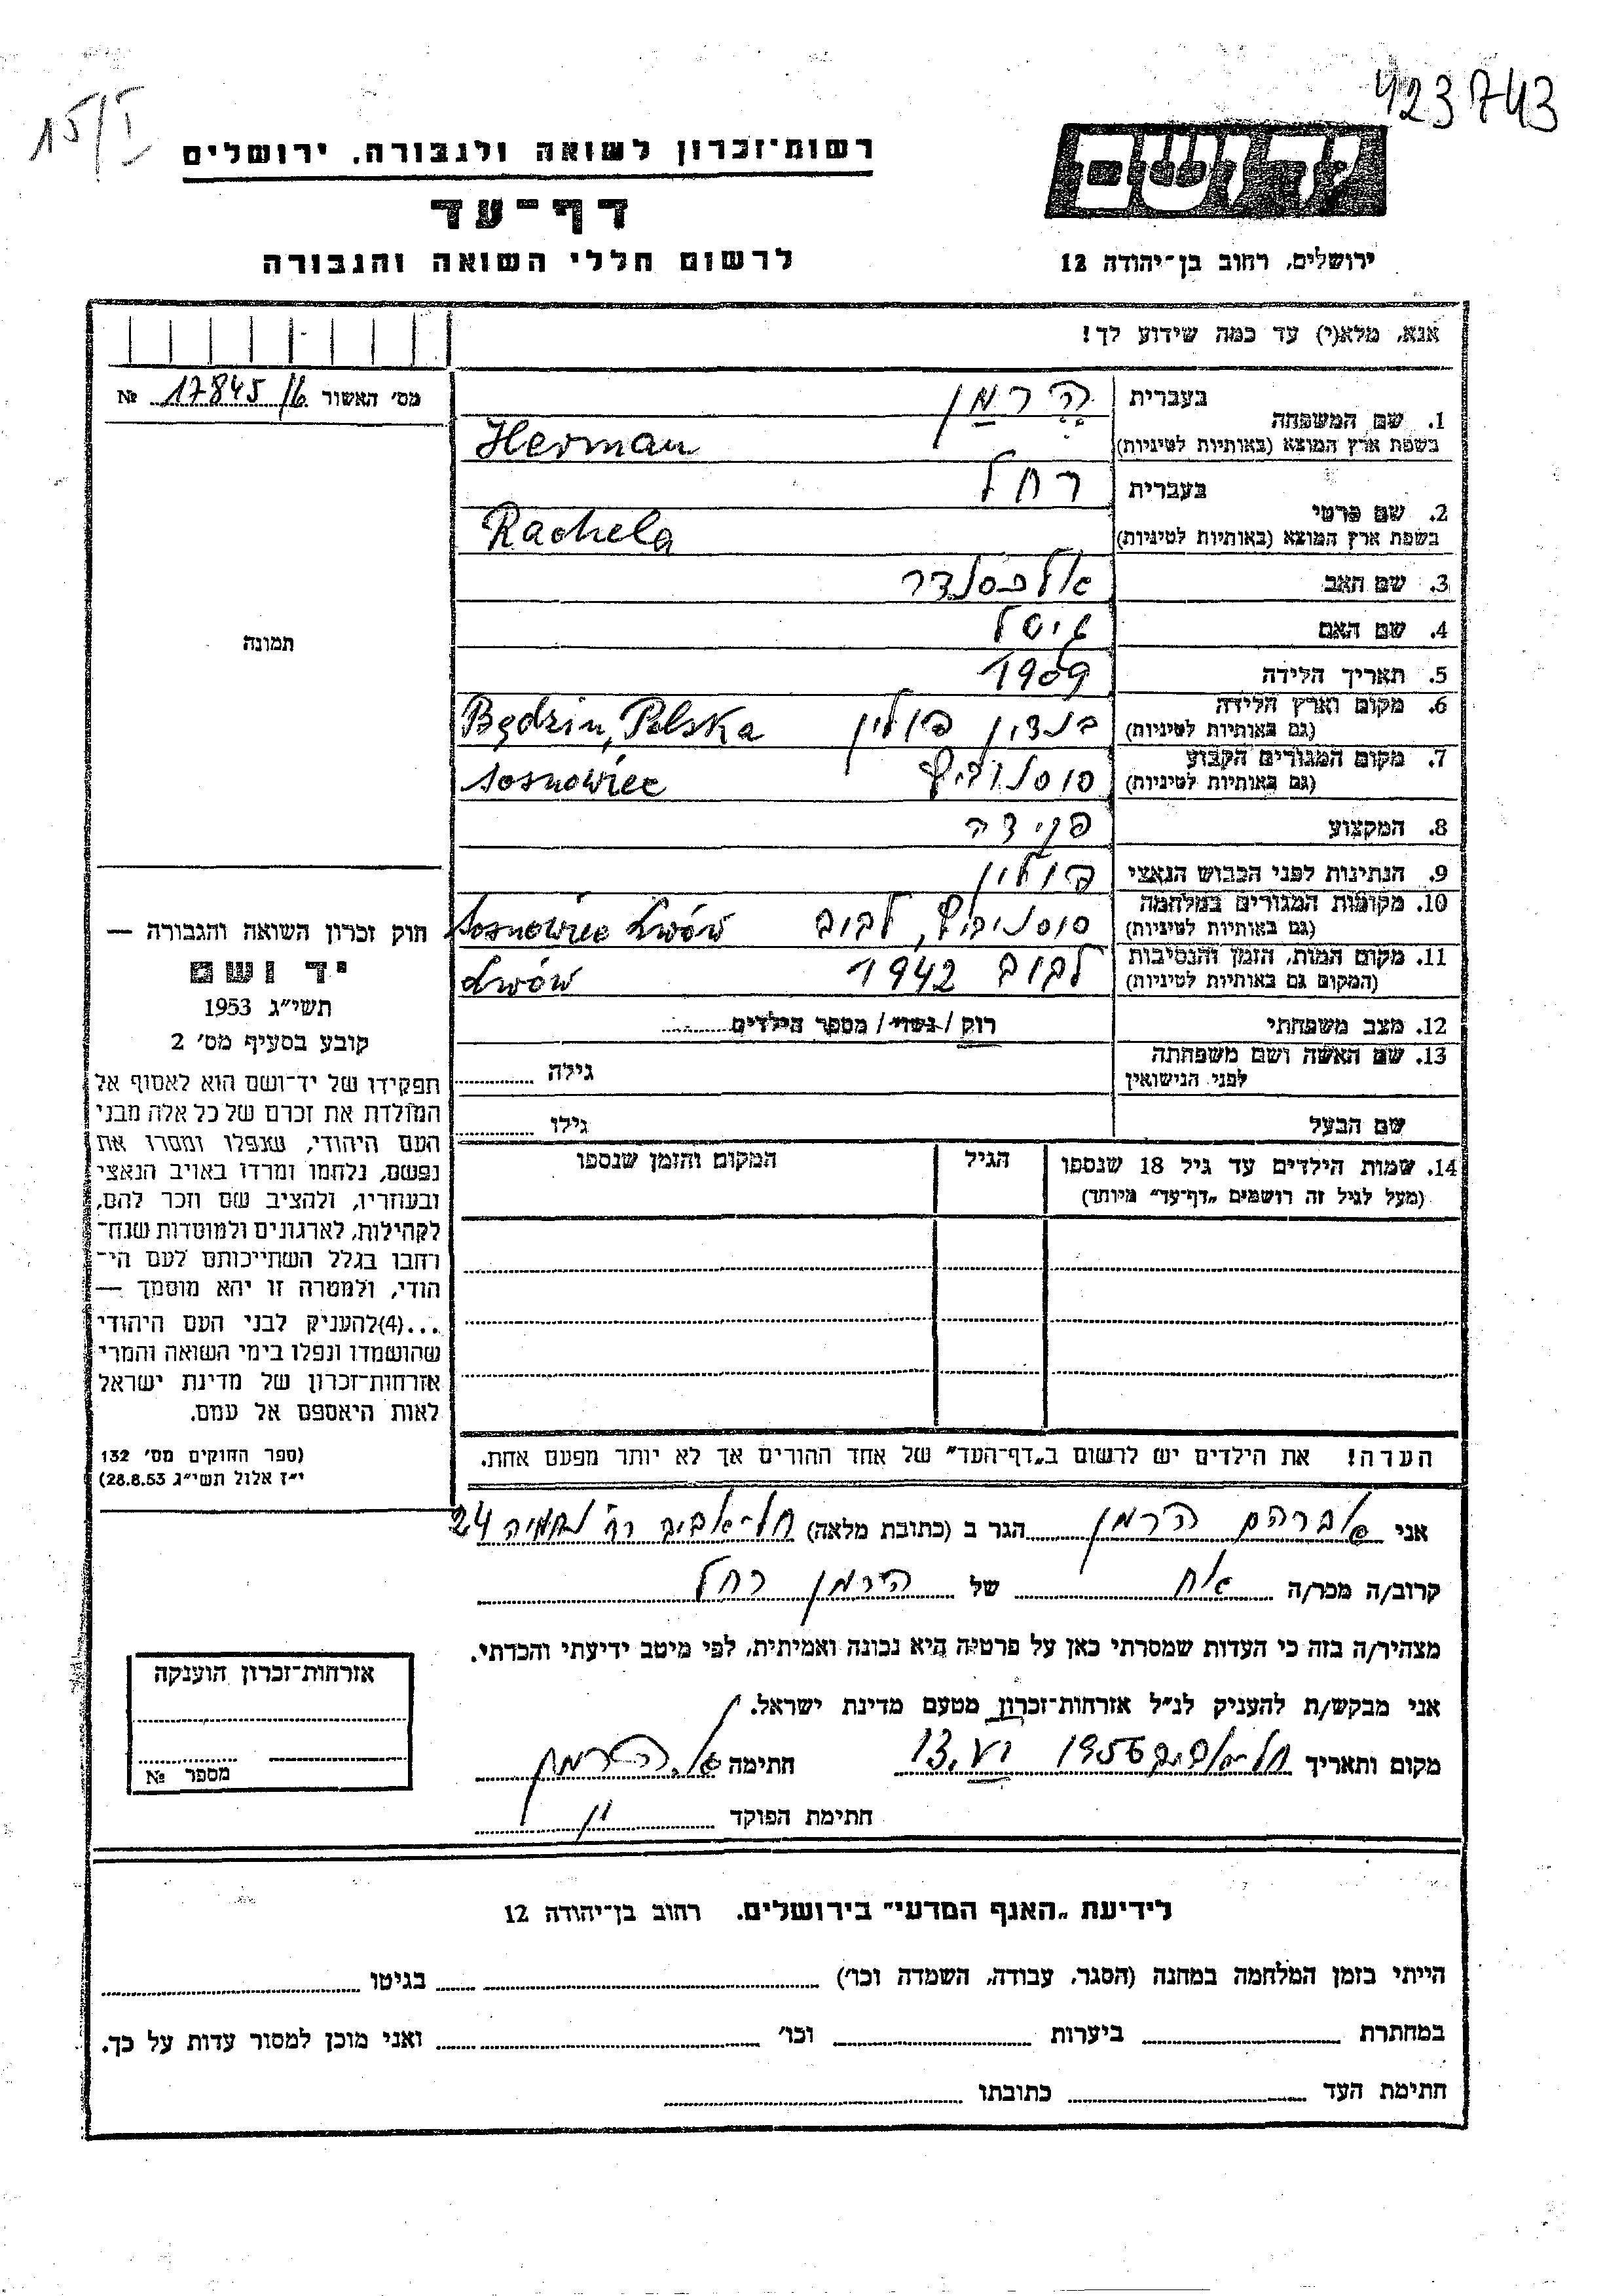 423743
15/I
יד ושם
רשות־זכרון לשואה ולגבורה. ירושלים
דף־עד
לרשום חללי השואה והגבורה
ירושלים, רחוב בן־יהודה 12
אנא, מלא(י) עד כמה שידוע לך!
מס׳ האשור 17845/6 №
1. שם המשפחה
בעברית הרמן
בשפת ארץ המוצא (באותיות לטיניות) Herman
2. שם פרטי
בעברית רחל
בשפת ארץ המוצא (באותיות לטיניות) Rachela
3. שם האב אלכסנדר
4. שם האם גיטל
5. תאריך הלידה 1909
6. מקום וארץ הלידה בנדין פולין Będzin, Polska
(גם באותיות לטיניות)
7. מקום המגורים הקבוע סוסנוביץ Sosnowiec
(גם באותיות לטיניות)
8. המקצוע פקידה
9. הנתינות לפני הכבוש הנאצי פולין
10. מקומות המגורים במלחמה סוסנוביץ, לבוב Sosnowiec Lwów
(גם באותיות לטיניות)
11. מקום המות, הזמן והנסיבות לבוב 1942 Lwów
(המקום גם באותיות לטיניות)
12. מצב משפחתי רוק / נשוי / מספר הילדים
13. שם האשה ושם משפחתה
לפני הנישואין גילה
שם הבעל גילו
14. שמות הילדים עד גיל 18 שנספו הגיל המקום והזמן שנספו
(מעל לגיל זה רושמים „דף־עד” מיוחד)
הערה! את הילדים יש לרשום ב„דף־העד” של אחד ההורים אך לא יותר מפעם אחת.
תמונה
חוק זכרון השואה והגבורה —
יד ושם
תשי״ג 1953
קובע בסעיף מס׳ 2
תפקידו של יד־ושם הוא לאסוף אל
המולדת את זכרם של כל אלה מבני
העם היהודי, שנפלו ומסרו את
נפשם, נלחמו ומרדו באויב הנאצי
ובעוזריו, ולהציב שם וזכר להם,
לקהילות, לארגונים ולמוסדות שנח־
רחבו בגלל השתייכותם לעם הי־
הודי, ולמטרה זו יהא מוסמך —
...(4)להעניק לבני העם היהודי
שהושמדו ונפלו בימי השואה והמרי
אזרחות־זכרון של מדינת ישראל
לאות היאספם אל עמם.
(ספר החוקים מס׳ 132
י״ז אלול תשי״ג 28.8.53)
אני אברהם הרמן הגר ב (כתובת מלאה) תל־אביב רח׳ נחמיה 24
קרוב/ה מכר/ה אח של הירמן רחל
מצהיר/ה בזה כי העדות שמסרתי כאן על פרטיה היא נכונה ואמיתית, לפי מיטב ידיעתי והכרתי.
אני מבקש/ת להעניק לנ״ל אזרחות־זכרון מטעם מדינת ישראל.
מקום ותאריך תל־אביב 1956 13.VI חתימה א. הרמן
חתימת הפוקד
אזרחות־זכרון הוענקה
מספר №
לידיעת „האנף המדעי” בירושלים. רחוב בן־יהודה 12
הייתי בזמן המלחמה במחנה (הסגר, עבודה, השמדה וכו׳) בגיטו
במחתרת ביערות וכו׳ ואני מוכן למסור עדות על כך.
חתימת העד כתובתו